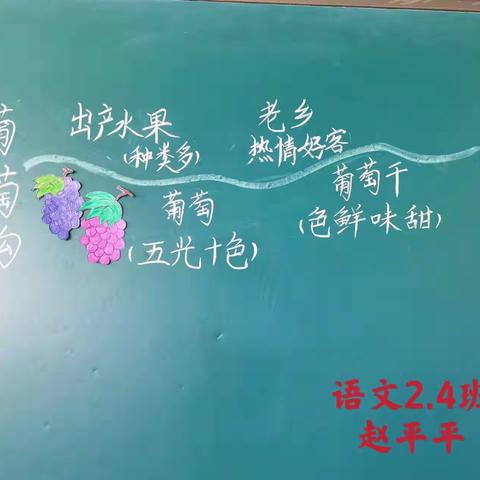 葡萄沟
出产水果
(种类多)
老乡
热情好客
葡萄
(五光十色)
葡萄干
(色鲜味甜)
语文2.4班
赵平平